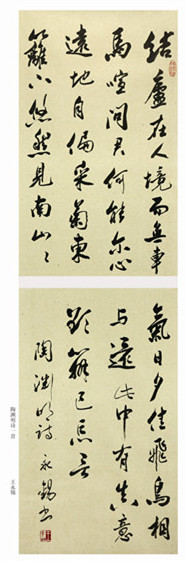 結廬在人境而無車
馬喧問君何能尔心
遠地自偏采菊東
籬下悠然見南山々
氣日夕佳飛鳥相
与還此中有真意
欲辯已忘言
陶淵明詩 永錫書
陶淵明詩一首
王永錫